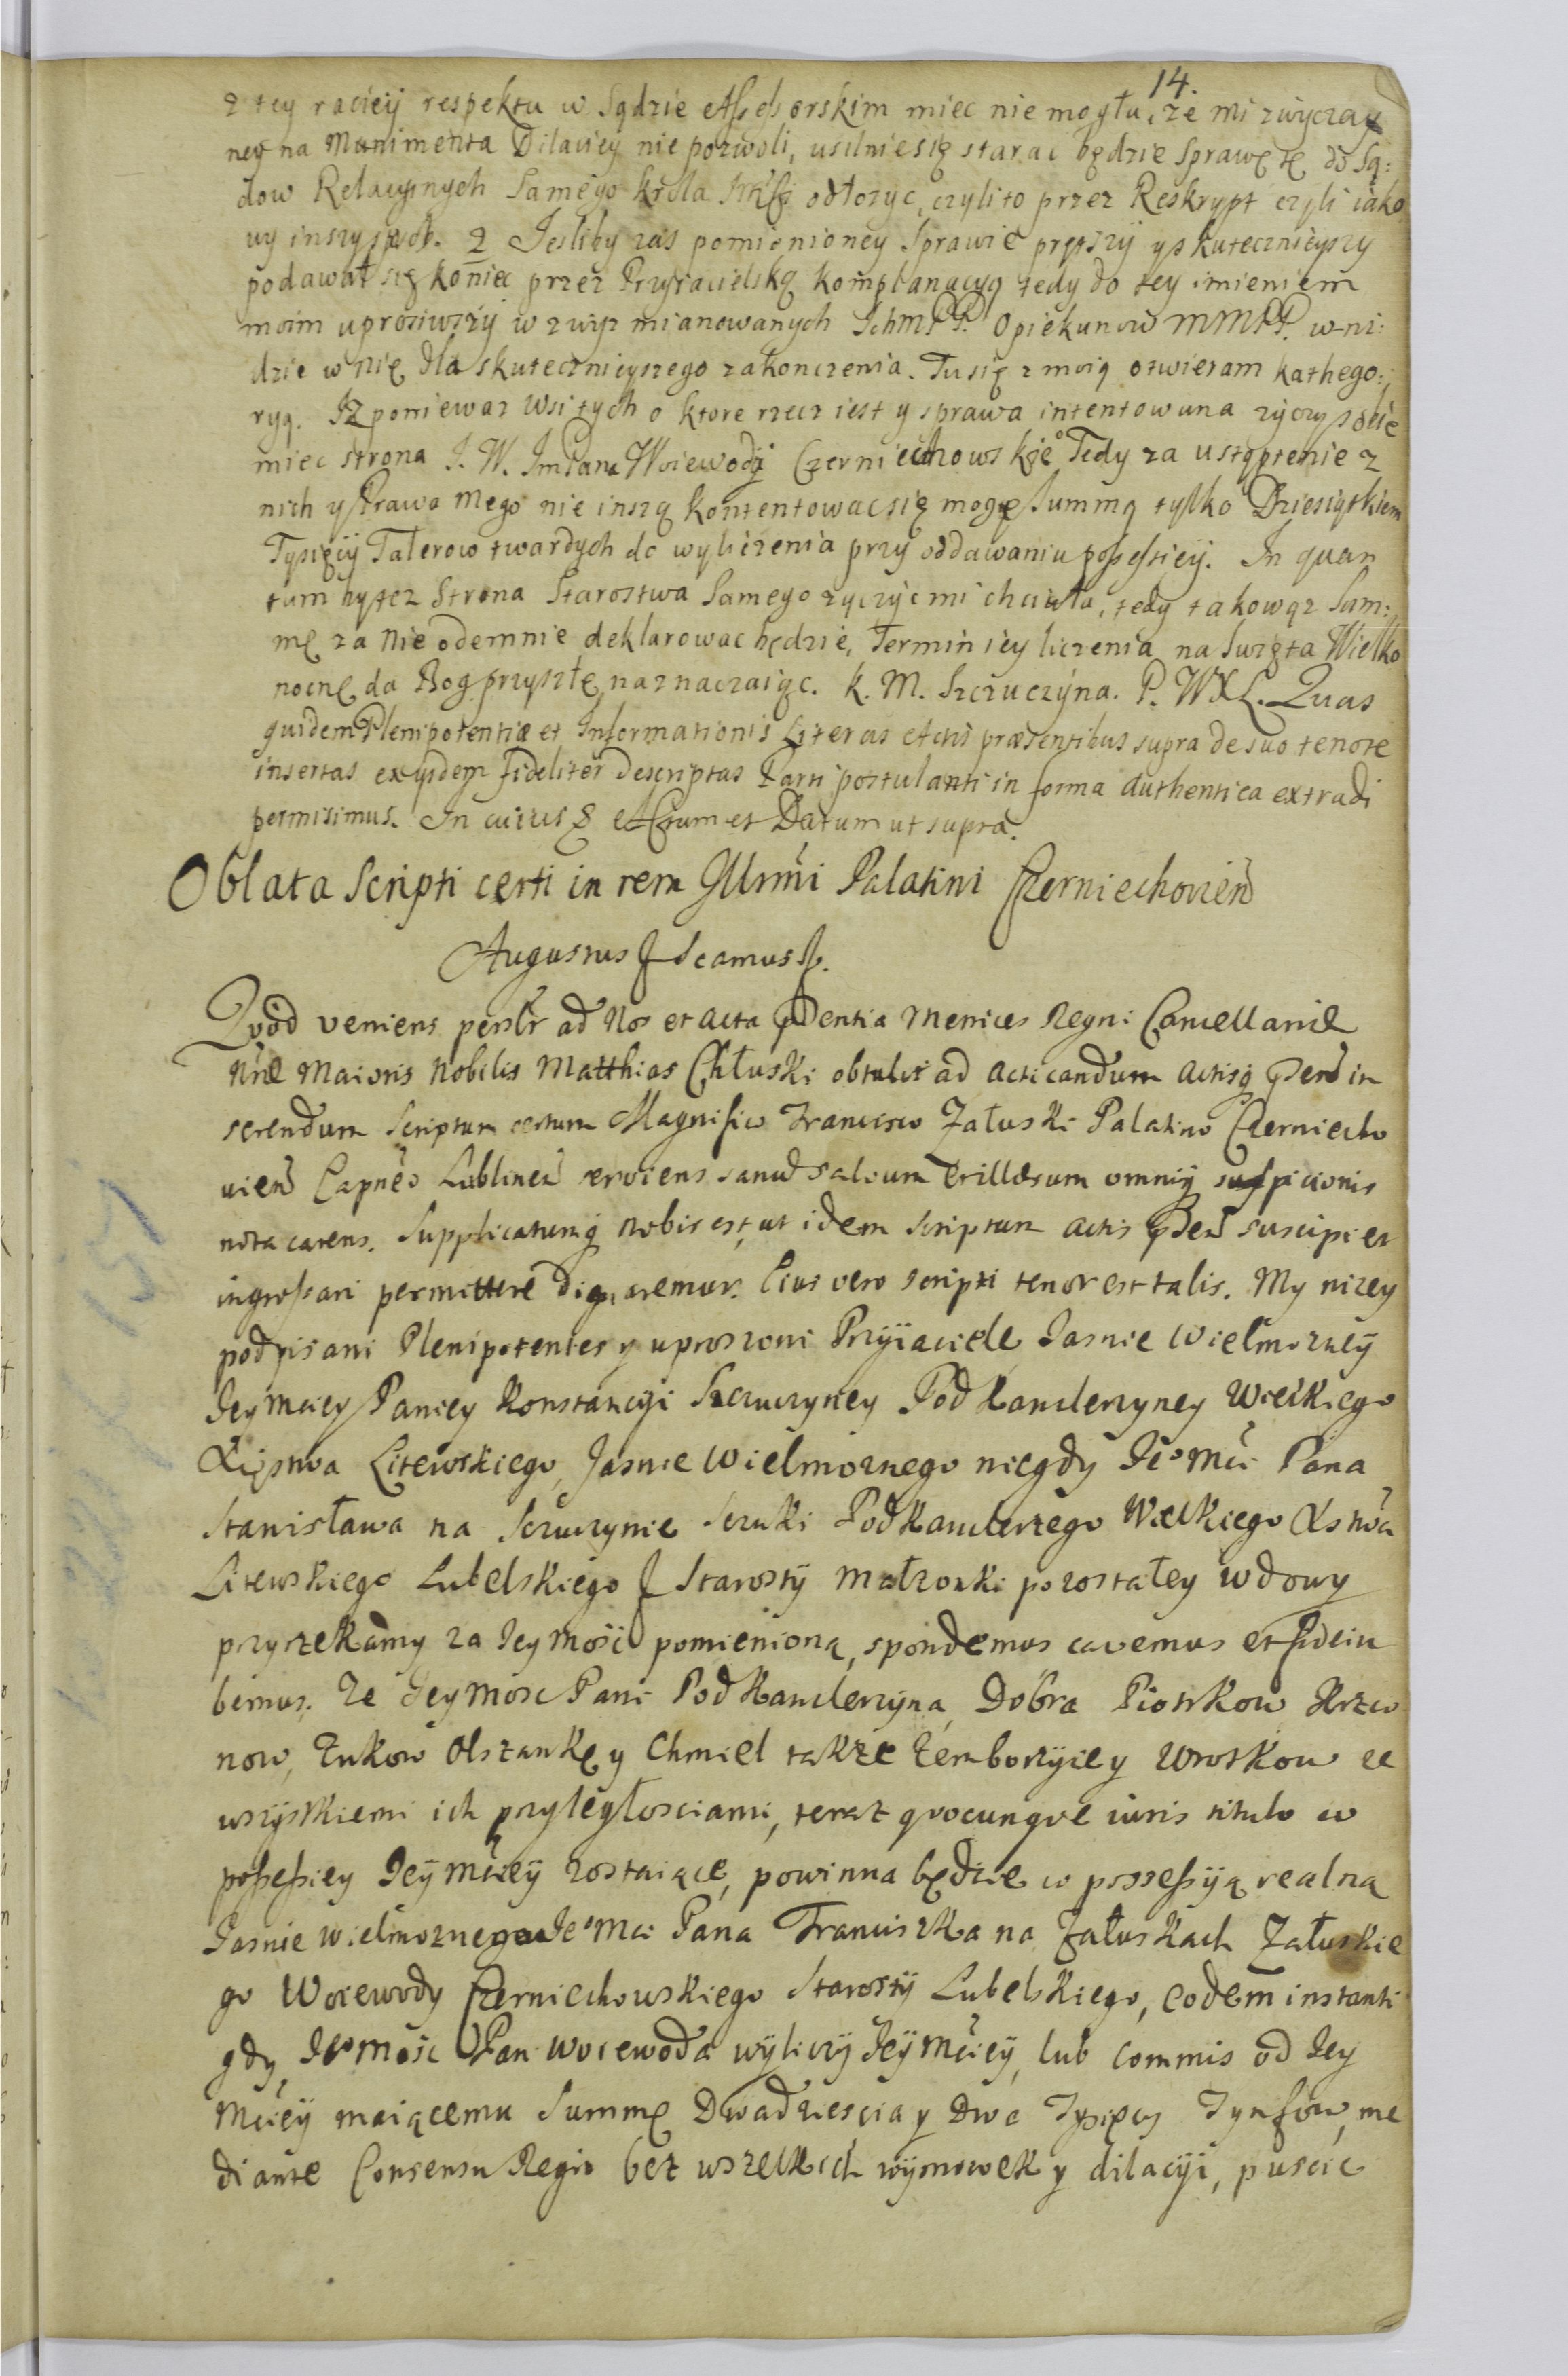 14.
z tey raciey respektu w Sądzie Assessorskim miec nie mogła, że mi zwyczay
ney na Munimenta Dilaciey nie pozwoli, usilnie się starac będzie Sprawę tę do Są:
dow Relacyinych Samego Krola odłozyc, czyli to przez Reskrypt czyli iako
wy inszy sposob. 2 Jesliby zas pomienioney Sprawie prętszy y skutecznieyszy
podawał się koniec przez Przyiacielską Komplanacyą tedy do tey imieniem
moim uprosiwszy wzwyz mianowanych IchmPP. Opiekunow MMPP. w ni:
dzie w nię dla skutecznieyszego zakonczenia. Tu się z moią otwieram kathego:
ryą. Iz poniewaz Wsi tych o ktore rzecz iest y sprawa intentowana zyczy sobie
miec strona J. W. ImPana Woiewody Czerniechowskie° Tedy za ustąpienie z
nich y Prawa mego nie inszą kontentowac się mogę Summą tylko Dziesiątkiem
Tysięcy Talerow twardych do wyliczenia przy oddawaniu possessiey. In quan
tum by tez Strona Starostwa Samego zyczyc mi chciała, tedy takowąz Sum:
mę za nie odemnie deklarowac będzie, Termin iey liczenia na Swięta Wielko
nocnę da Bog przyszłę naznaczaiąc. K. M. Szczuczyna. P. WXL. Quas
quidem Plenipotentiæ et Informationis Literas Actis præsentibus supra de suo tenore
insertas ex ijsdem fideliter descriptas Parti postulanti in forma authentica extradi
permisimus. In cuius & Actum et Datum ut supra.
Oblata Scripti certi in rem Illrmi Palatini Czerniechovien
Augustus & Scamus &.
Quod veniens perslr ad Nos et acta pdentia Metrices Regni Cancellariæ
Nræ Maioris Nobilis Matthias Chłuski obtulit ad acticandum actisq pden in
serendum Scriptum certum Magnifico Francisco Załuski Palatino Czerniecho
vien Capneo Lublinen serviens sanum salvum et illæsum omniq suspicionis
nota carens. Supplicatumq nobis est, ut idem Scriptum actis pden suscipi et
ingrossari permittere dignaremur. Cius vero scripti tenor est talis. My nizey
podpisani Plenipotentes y uproszoni Przyiaciele Jasnie Wielmozney
Jeymciey Paniey Konstancyi Szczuczyney Podkanclerzyney Wielkiego
Xięstwa Litewskiego, Jasnie Wielmoznego niegdy Je°mci Pana
Stanisława na Szczuczynie Szczuki Podkanclerzego Wielkiego Xstwa
Litewskiego Lubelskiego & Starosty małzonki pozostałey wdowy
przyrzekamy za Jeymość pomienioną, spondemus cavemus et fideiu
bemus. Ze Jeymosc Pani Podkanclerzyna, Dobra Piotrkow Krzcz
now, Zukow Olszankę y Chmiel takze Zemborzyce y Wrotkow ze
wszystkiemi ich przyległosciami, teraz qvocunqve iuris titulo w
possessiey Jeymciey zostaiące, powinna będzie w possessyą realną
Jasnie wielmoznego Je°mci Pana Franciszka na Załuskach Załuskie
go Woiewody Czerniechowskiego Starosty Lubelskiego, eodem instanti
gdy Je°mość Pan Woiewoda wyliczy Jeymciey, lub commis od Jey
Mciey maiącemu Summę Dwadziescia y Dwa Tysięcy Tynfow, me
diante Consensu Regio bez wszelkich wymowek y dilacyi, puscic